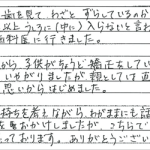 歯を見て、わざと ずらしているのか
以上うしろに（中に）入らないと言わ
歯科医に行きました。
から子供がちょうど矯正をしてい
いやがりましたが親としては直
思いからはじめました。
持ちを考えながら、わがままにも話
をおかけしましたが、こちらで
っております。ありがとうござい